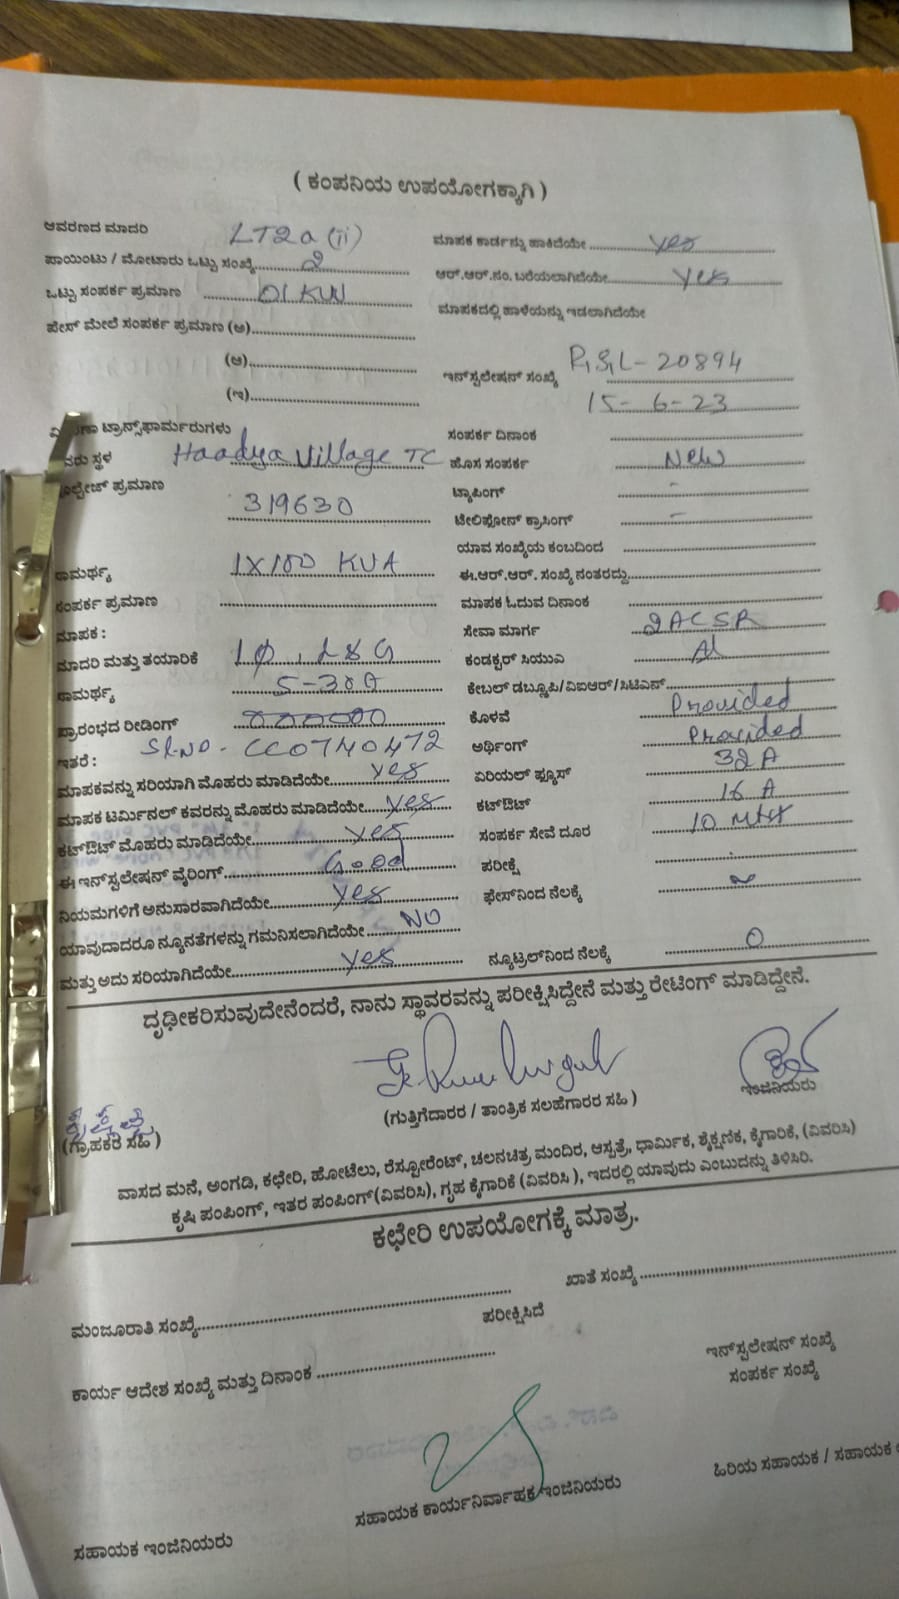 ( ಕಂಪನಿಯ ಉಪಯೋಗಕ್ಕಾಗಿ )
ಆವರಣದ ಮಾದರಿ LT2a (ii) ಮಾಪಕ ಕಾರ್ಡನ್ನು ಹಾಕಿದೆಯೇ yes
ಪಾಯಿಂಟು / ಮೋಟಾರು ಒಟ್ಟು ಸಂಖ್ಯೆ 2 ಆರ್.ಆರ್.ನಂ. ಬರೆಯಲಾಗಿದೆಯೇ yes
ಒಟ್ಟು ಸಂಪರ್ಕ ಪ್ರಮಾಣ 01 KW ಮಾಪಕದಲ್ಲಿ ಹಾಳೆಯನ್ನು ಇಡಲಾಗಿದೆಯೇ
ಪೇಸ್ ಮೇಲೆ ಸಂಪರ್ಕ ಪ್ರಮಾಣ (ಅ)
(ಆ) ಇನ್‌ಸ್ಟಲೇಷನ್ ಸಂಖ್ಯೆ 20894
(ಇ) 15-6-23
ಟ್ರಾನ್ಸ್‌ಫಾರ್ಮರುಗಳು ಸಂಪರ್ಕ ದಿನಾಂಕ
ಸ್ಥಳ Haadya Village TC ಹೊಸ ಸಂಪರ್ಕ New
ಪ್ರಮಾಣ ಟ್ಯಾಪಿಂಗ್ -
319630 ಟೇಲಿಫೋನ್ ಕ್ರಾಸಿಂಗ್ -
ಯಾವ ಸಂಖ್ಯೆಯ ಕಂಬದಿಂದ
1X100 KVA ಈ.ಆರ್.ಆರ್. ಸಂಖ್ಯೆ ನಂತರದ್ದು
ಸಂಪರ್ಕ ಪ್ರಮಾಣ ಮಾಪಕ ಓದುವ ದಿನಾಂಕ
ಮಾಪಕ : ಸೇವಾ ಮಾರ್ಗ 2ACSR
ಮಾದರಿ ಮತ್ತು ತಯಾರಿಕೆ 1φ, L&G ಕಂಡಕ್ಟರ್ ಸಿಯುಎ Al
5-30A ಕೇಬಲ್ ಡಬ್ಲೂಪಿ/ವಿಐಆರ್/ಸಿಟಿಎನ್
ಪ್ರಾರಂಭದ ರೀಡಿಂಗ್ 000000 ಕೊಳವೆ Provided
ಇತರೆ : Sl.No - CC0740472 ಅರ್ಥಿಂಗ್ Provided
ಮಾಪಕವನ್ನು ಸರಿಯಾಗಿ ಮೊಹರು ಮಾಡಿದೆಯೇ yes ಏರಿಯಲ್ ಫ್ಯೂಸ್ 32 A
ಮಾಪಕ ಟರ್ಮಿನಲ್ ಕವರನ್ನು ಮೊಹರು ಮಾಡಿದೆಯೇ yes ಕಟ್‌ಔಟ್ 16 A
ಕಟ್‌ಔಟ್ ಮೊಹರು ಮಾಡಿದೆಯೇ yes ಸಂಪರ್ಕ ಸೇವೆ ದೂರ 10
ಈ ಇನ್‌ಸ್ಟಲೇಷನ್ ವೈರಿಂಗ್ Good ಪರೀಕ್ಷೆ
ನಿಯಮಗಳಿಗೆ ಅನುಸಾರವಾಗಿದೆಯೇ yes ಫೇಸ್‌ನಿಂದ ನೆಲಕ್ಕೆ
ಯಾವುದಾದರೂ ನ್ಯೂನತೆಗಳನ್ನು ಗಮನಿಸಲಾಗಿದೆಯೇ NO
ಮತ್ತು ಅದು ಸರಿಯಾಗಿದೆಯೇ yes ನ್ಯೂಟ್ರಲ್‌ನಿಂದ ನೆಲಕ್ಕೆ 0
ದೃಢೀಕರಿಸುವುದೇನೆಂದರೆ, ನಾನು ಸ್ಥಾವರವನ್ನು ಪರೀಕ್ಷಿಸಿದ್ದೇನೆ ಮತ್ತು ರೇಟಿಂಗ್ ಮಾಡಿದ್ದೇನೆ.
(ಗ್ರಾಹಕರ ಸಹಿ ) (ಗುತ್ತಿಗೆದಾರರ / ತಾಂತ್ರಿಕ ಸಲಹೆಗಾರರ ಸಹಿ ) ಇಂಜಿನಿಯರು
ವಾಸದ ಮನೆ, ಅಂಗಡಿ, ಕಛೇರಿ, ಹೋಟೆಲು, ರೆಸ್ಟೋರೆಂಟ್, ಚಲನಚಿತ್ರ ಮಂದಿರ, ಆಸ್ಪತ್ರೆ, ಧಾರ್ಮಿಕ, ಶೈಕ್ಷಣಿಕ, ಕೈಗಾರಿಕೆ, (ವಿವರಿಸಿ)
ಕೃಷಿ ಪಂಪಿಂಗ್, ಇತರ ಪಂಪಿಂಗ್(ವಿವರಿಸಿ), ಗೃಹ ಕೈಗಾರಿಕೆ (ವಿವರಿಸಿ ), ಇದರಲ್ಲಿ ಯಾವುದು ಎಂಬುದನ್ನು ತಿಳಿಸಿರಿ.
ಕಛೇರಿ ಉಪಯೋಗಕ್ಕೆ ಮಾತ್ರ.
ಮಂಜೂರಾತಿ ಸಂಖ್ಯೆ ಖಾತೆ ಸಂಖ್ಯೆ
ಪರೀಕ್ಷಿಸಿದೆ
ಕಾರ್ಯ ಆದೇಶ ಸಂಖ್ಯೆ ಮತ್ತು ದಿನಾಂಕ ಇನ್‌ಸ್ಟಲೇಷನ್ ಸಂಖ್ಯೆ
ಸಂಪರ್ಕ ಸಂಖ್ಯೆ
ಸಹಾಯಕ ಇಂಜಿನಿಯರು ಸಹಾಯಕ ಕಾರ್ಯನಿರ್ವಾಹಕ ಇಂಜಿನಿಯರು ಹಿರಿಯ ಸಹಾಯಕ / ಸಹಾಯಕ